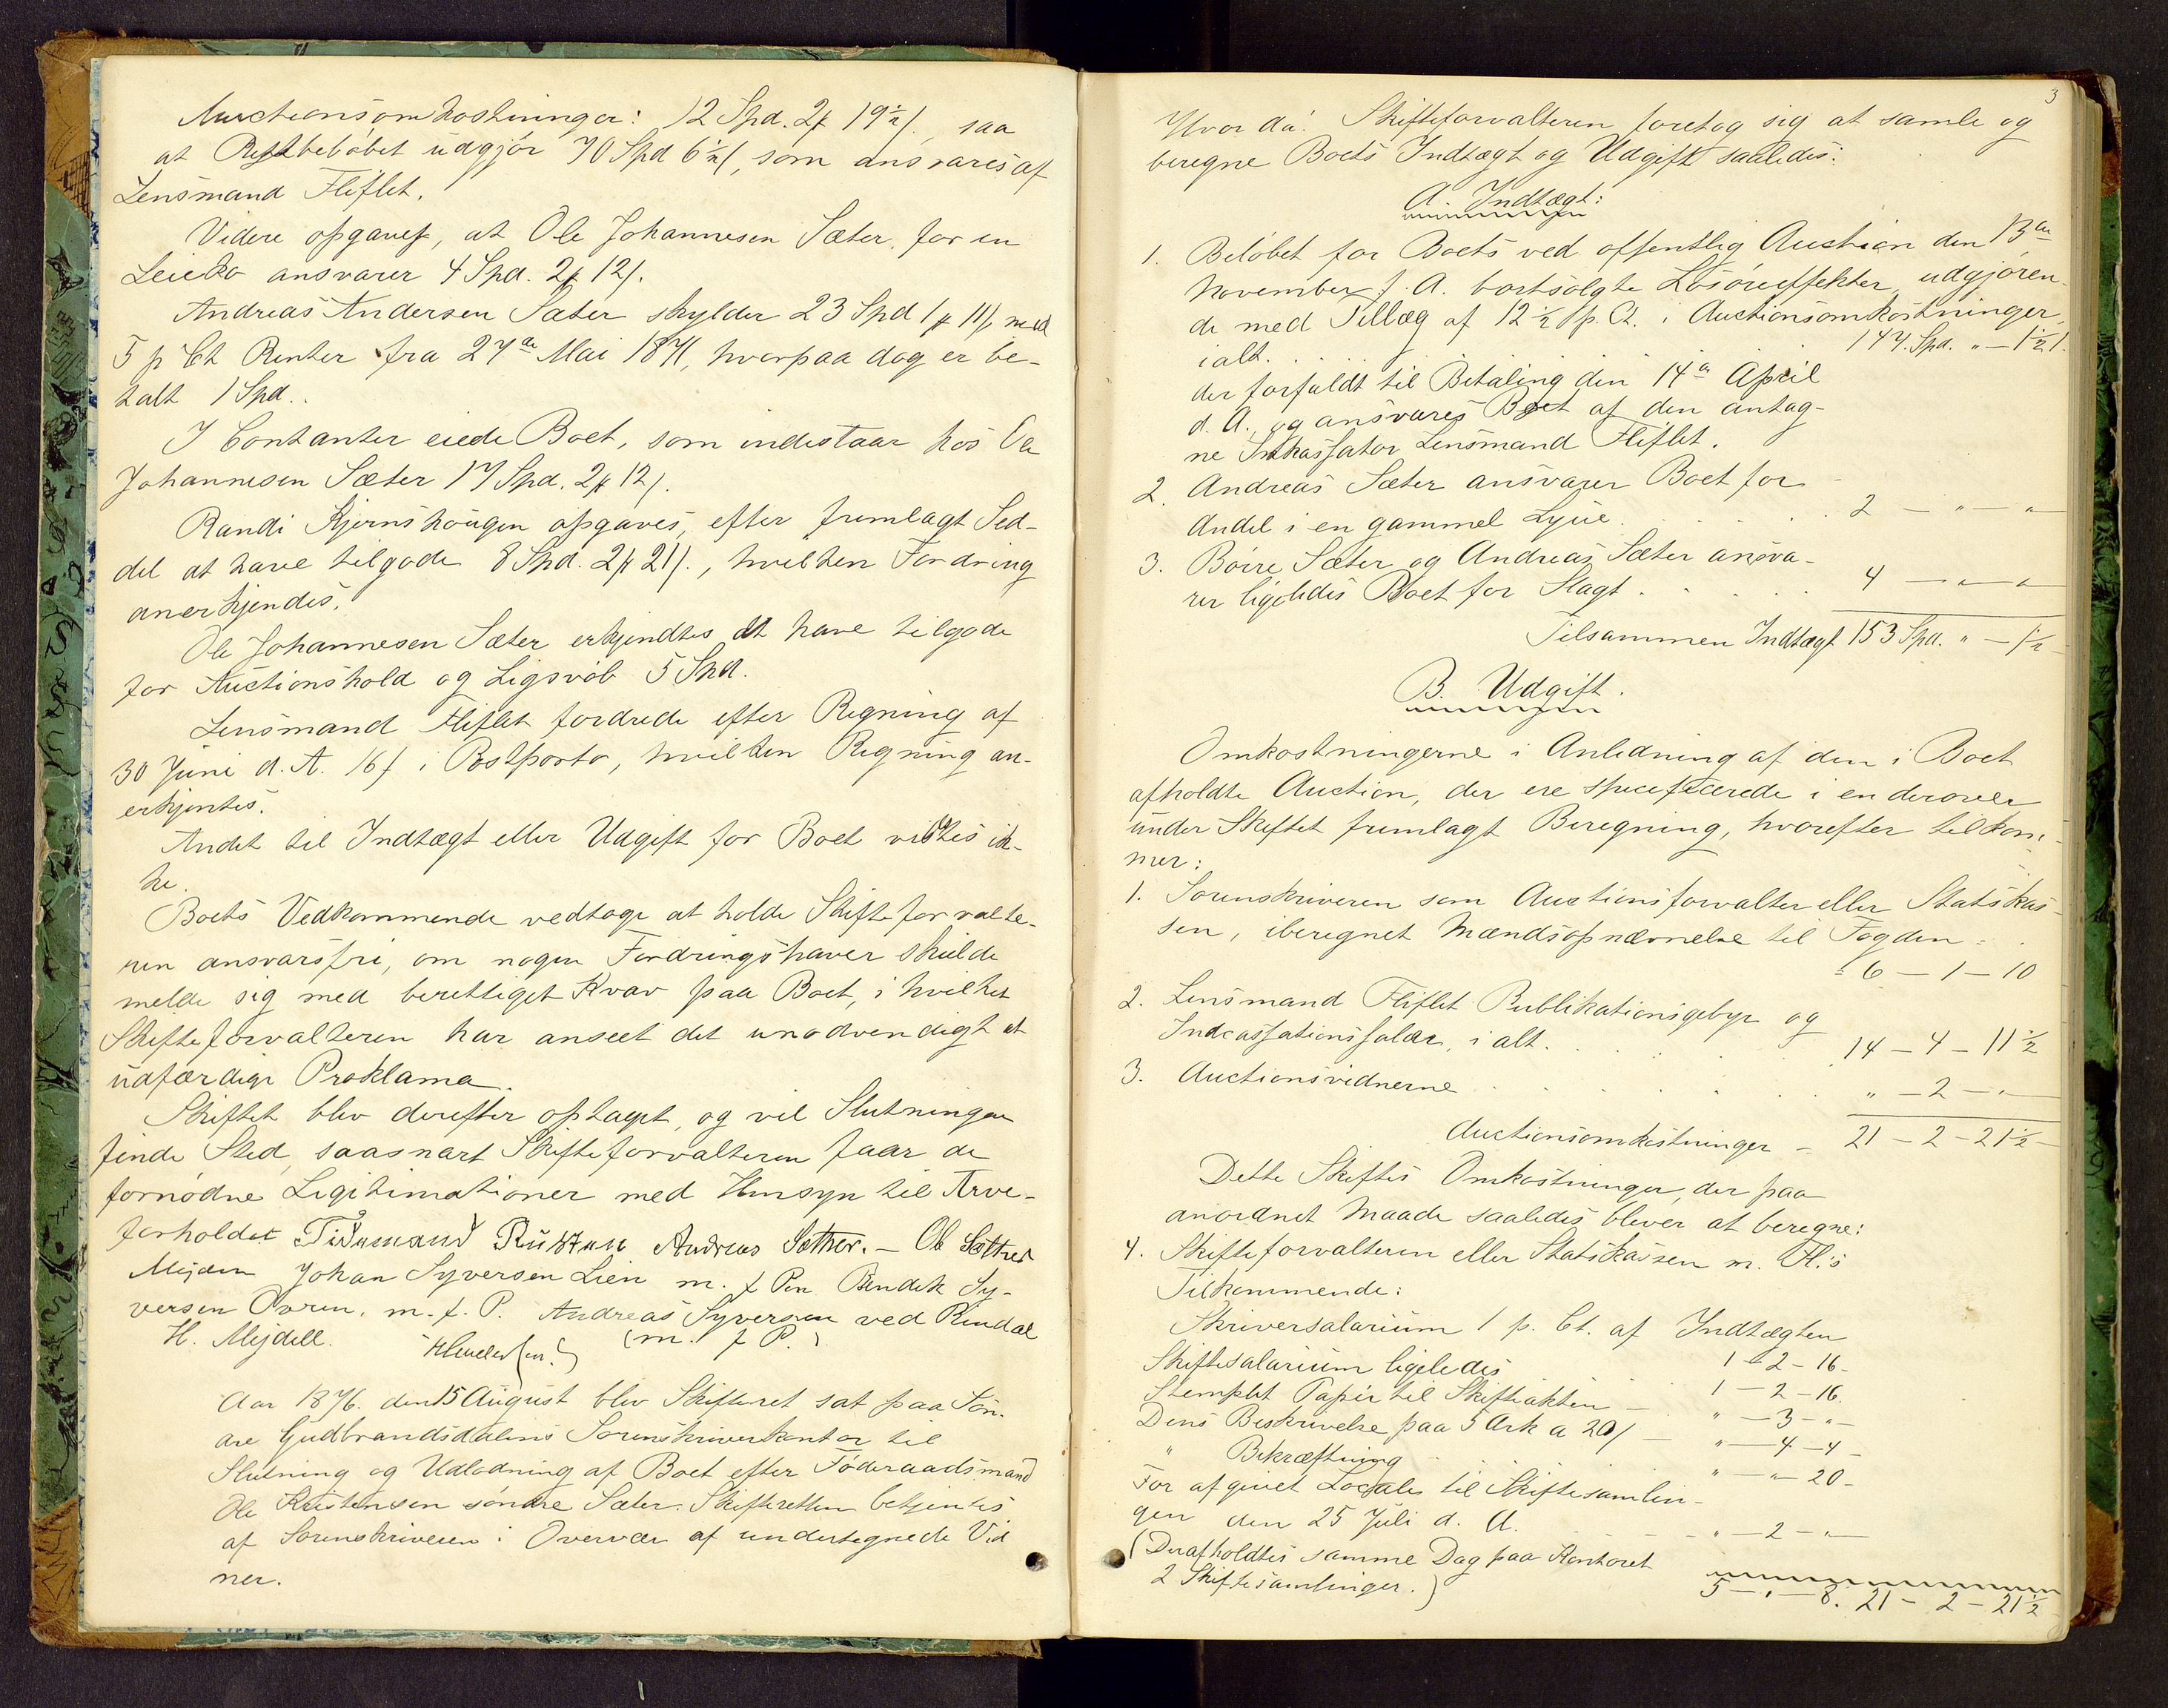 Auctionsomkostninger: 12 Spd. 2 ß 19½ /, saa
at Restbeløbet udgjør 70 Spd 6½ /, som ansvares af
Lensmand Fliflet.
Videre opgaves, at Ole Johannesen Sæter, for en
Leieko ansvarer 4 Spd. 2 ß 12 /.
Andreas Andersen Sæter skylder 23 Spd 1 ß 11 /, med
5 p Ct Renter fra 27de Mai 1871, hvorpaa dog er be-
talt 1 Spd..
I Contanter eiede Boet, som indestaar hos Ole
Johannesen Sæter 17 Spd. 2 ß 12 /.
Randi Kjernshougen opgaves, efter fremlagt Sed-
del at have tilgode 8 Spd. 2 ß 21 /., hvilken Fordring
anerkjendes.
Ole Johannesen Sæter erkjendtes at have tilgode
for Auctionshold og Ligsvøb 5 Spd.
Lensmand Fliflet fordrede efter Regning af
30 Juni d. A. 16 / i Postporto, hvilken Regning an-
erkjentes.
Andet til Indtægt eller Udgift for Boet vidstes ik-
ke.
Boets Vedkommende vedtoge at holde Skifteforvalte-
ren ansvarsfri, om nogen Fordringshaver skulde
melde sig med berettiget Krav paa Boet, i hvilket
Skifteforvalteren har anseet det unødvendigt at
udfærdige Proklama.
Skiftet blev derefter optaget, og vil Slutningen
finde Sted, saasnart Skifteforvalteren faar de
fornødne Legitimationer med Hensyn til Arve-
forholdet Tidemand Rusten Andreas Sæther. – Ole Sæther
Mejden Johan Syversen Lien m. f Pen Bendik Sy-
versen Øvren. m. f. P. Andreas Syversen ved Rindal
H. Mejdell. (m. f P.)
Aar 1876. den 15 August blev Skifteret sat paa Søn-
dre Gudbrandsdalens Sorenskriverkontor til
Slutning og Udlodning af Boet efter Føderaadsmand
Ole Kristensen søndre Sæter. Skifteretten betjentes
af Sorenskriveren i Overvær af undertegnede Vid
ner.
3
Hvor da: Skifteforvalteren foretog sig at samle og
beregne Boets Indtægt og Udgift saaledes:
A. Indtægt:
1. Beløbet for Boets ved offentlig Auction den 13de
November f. A. bortsolgte Løsøreeffekter, udgjøren-
de med Tillæg af 12½ p. Ct. i Auctionsomkostninger,
ialt. . . . . . 147. Spd. " – 1½ /.
der forfaldt til Betaling den 14de April
d. A., og ansvares Boet af den antag-
ne Inkassator Lensmand Fliflet.
2. Andreas Sæter ansvarer Boet for
Andel i en gammel Lyue. . . . . . 2 – " – "
3. Boire Sæter og Andreas Sæter ansva-
rer ligeledes Boet for Slagt . . . . . 4 – " – "
Tilsammen Indtægt 153 Spd. " – 1½
B. Udgift.
Omkostningerne i Anledning af den i Boet
afholdte Auction, der ere specificerede i en derover
under Skiftet fremlagt Beregning, hvorefter tilkom-
mer:
1. Sorenskriveren som Auctionsforvalter eller Statskas-
sen, iberegnet Mændsopnævnelse til Fogden = .
6 – 1 – 10
2. Lensmand Fliflet Publikationsgebyr og
Indcassationssalær, i alt. . . . . 14 – 4 – 11½
3. Auctionsvidnerne . . . . . " – 2 – "
Auctionsomkostninger – 21 – 2 – 21½
Dette Skiftes Omkostninger, der paa
anordnet Maade saaledes bliver at beregne:
4. Skifteforvalteren eller Statskassen m. H.s
Tilkommende:
Skriversalarium 1 p. Ct. af Indtægten
1 – 2 – 16 –
Skiftesalarium ligeledes
1 – 2 – 16.
Stemplet Papir til Skifteakten –
" – 3 – "
Dens Beskrivelse paa 5 Ark a 20 / –
" – 4 – 4 –
" Bekræftning
" – " – 20 –
For afgivet Locale til Skiftesamlin-
gen den 25 Juli d. A. " – 2 – "
(Der afholdtes samme Dag paa Kontoret
2 Skiftesamlinger.)
5 – " – 8. 21 – 2 – 21½